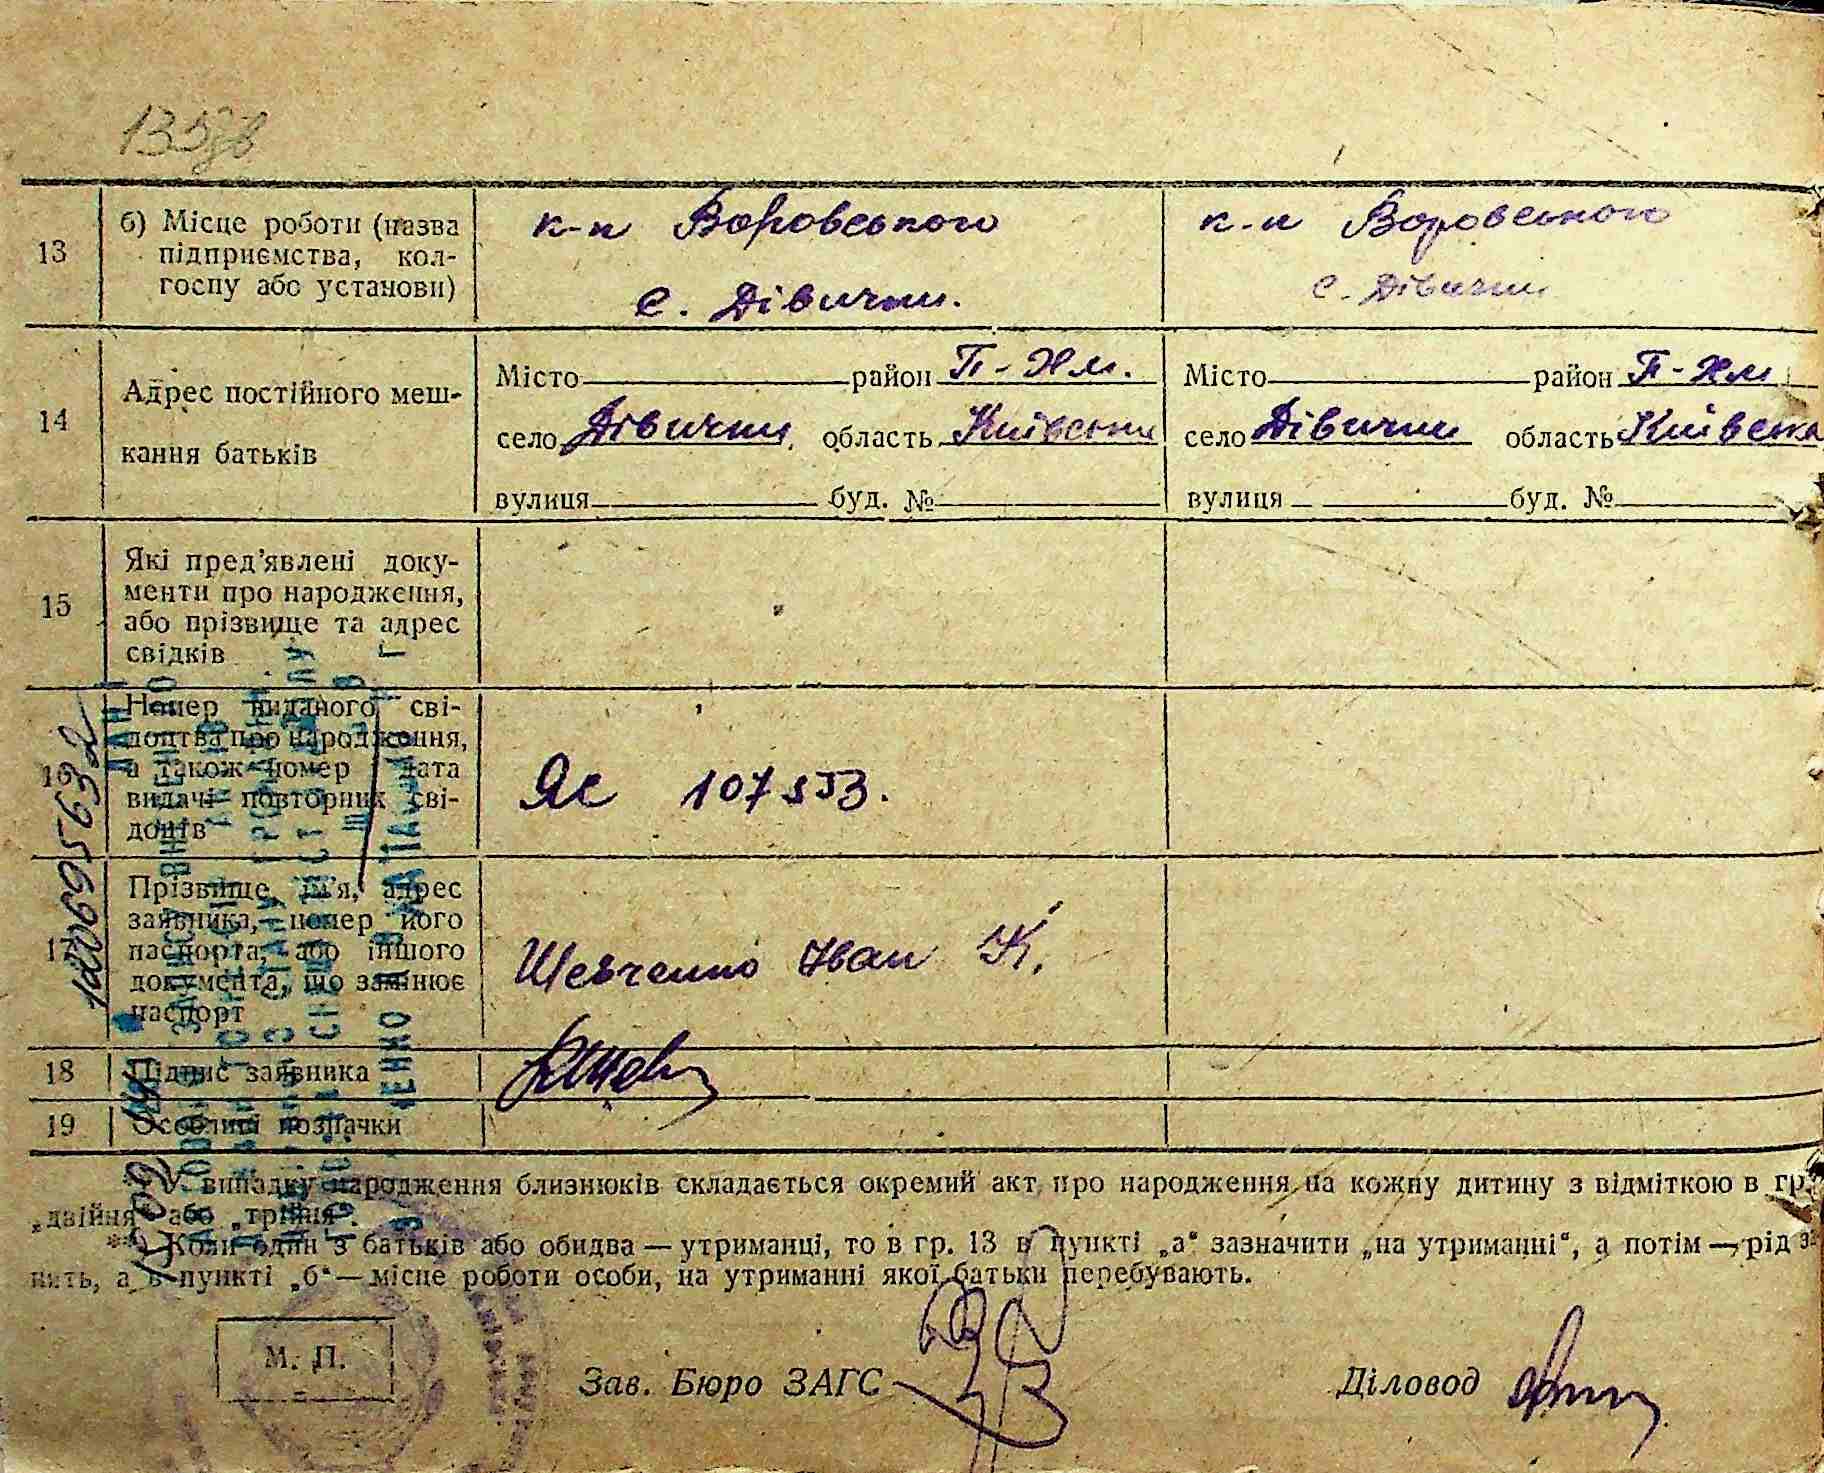 135зв
13 б) Місце роботи (назва підприємства, кол-
госпу або установи)
к-п Воровського
с. Дівички.
к-п Воровського
с. Дівички
14 Адрес постійного меш-
кання батьків
Місто район П-Хм.
село Дівички область Київська
вулиця буд. №
Місто район П-Хм
село Дівички область Київська
вулиця буд. №
15 Які пред'явлені доку-
менти про народження,
або прізвище та адрес
свідків
16 Номер виданого сві-
доцтва про народження,
а також номер і дата
видачі повторних сві-
доцтв
Яс 107553.
17 Прізвище, ім'я, адрес
заявника, номер його
паспорта, або іншого
документа, що замінює
паспорт
Шевченко Іван К.
18 Підпис заявника
19 Особливі позначки
*) У випадку народження близнюків складається окремий акт про народження на кожну дитину з відміткою в гр.
„двійня“ або „трійня“.
**) Коли один з батьків або обидва — утриманці, то в гр. 13 в пункті „а“ зазначити „на утриманні“, а потім — рід за-
нять, а в пункті „б“ — місце роботи особи, на утриманні якої батьки перебувають.
М. П.
Зав. Бюро ЗАГС
Діловод